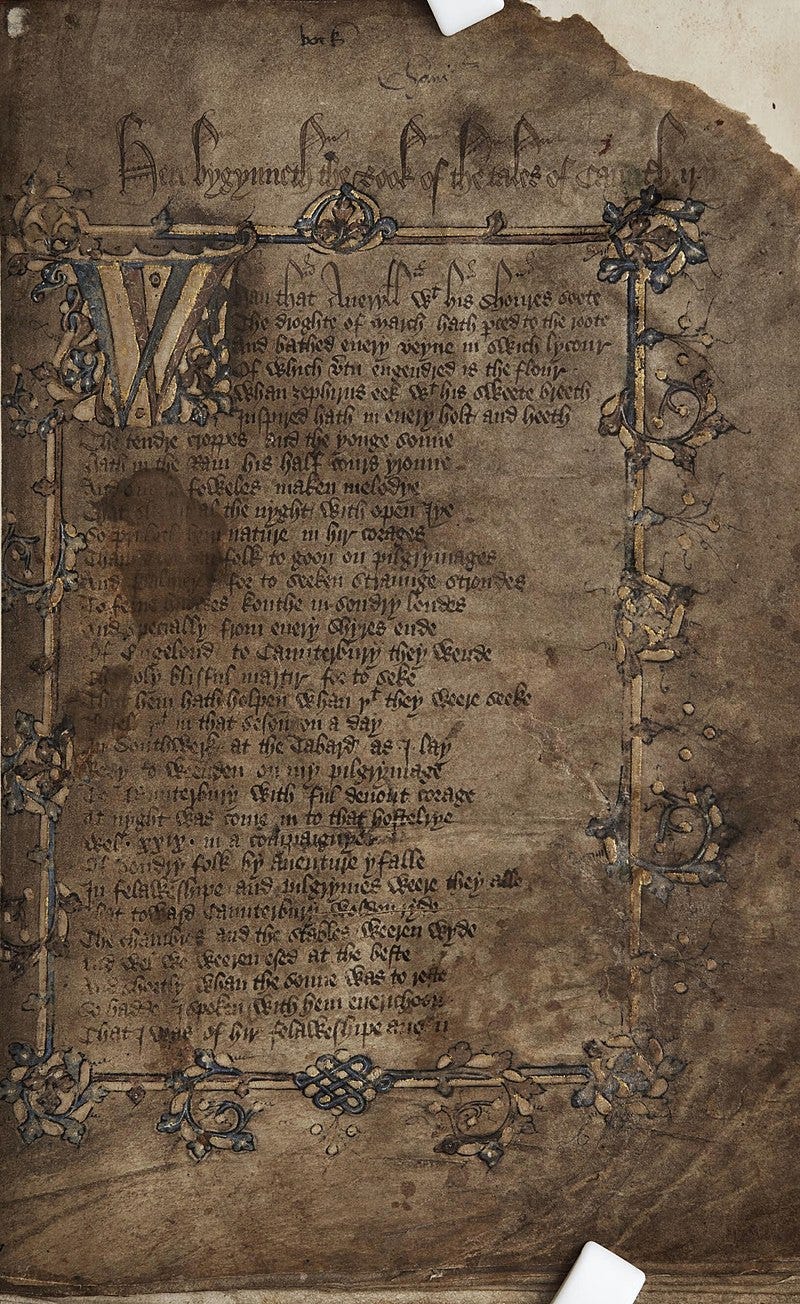 book
Here bygynneth the Book of the tales of Caunterbury
Whan that Aueryll wt his shoures soote
The droghte of march hath pced to the roote
And bathed euery veyne in swich lycour
Of which vtu engendred is the flour
Whan zephirus eek wt his sweete breeth
Inspired hath in euery holt and heeth
The tendre croppes and the yonge sonne
Hath in the Ram his half cours yronne
And foweles maken melodye
That al the nyght with open Iye
So hem nature in hir corages
folk to goon on pilgrymages
And for to seeken straunge strondes
To ferne halwes kouthe in sondry londes
And specially from euery shyres ende
Of Engelond to Caunterbury they wende
The holy blisful martir for to seke
That hem hath holpen whan þt they weere seeke
in that seson on a day
In Southwerk at the Tabard as I lay
Redy to weenden on my pilgrymage
To Caunterbury with ful deuout corage
At nyght was come in to that hostelrye
Wel .xxix. in a compaignye
Of sondry folk by auenture yfalle
In felaweshipe and pilgrymes weere they alle
That toward Caunterbury wolden ryde
The chambres and the stables weeren wyde
And wel we weeren esed at the beste
And shortly whan the sonne was to reste
So hadde I spoken with hem euerichoon
That I was of hir felaweshipe anon